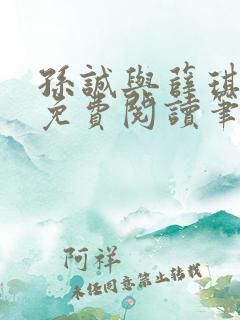 孫誠與薛琪
免費閱讀筆
阿祥
未經同意禁止轉載